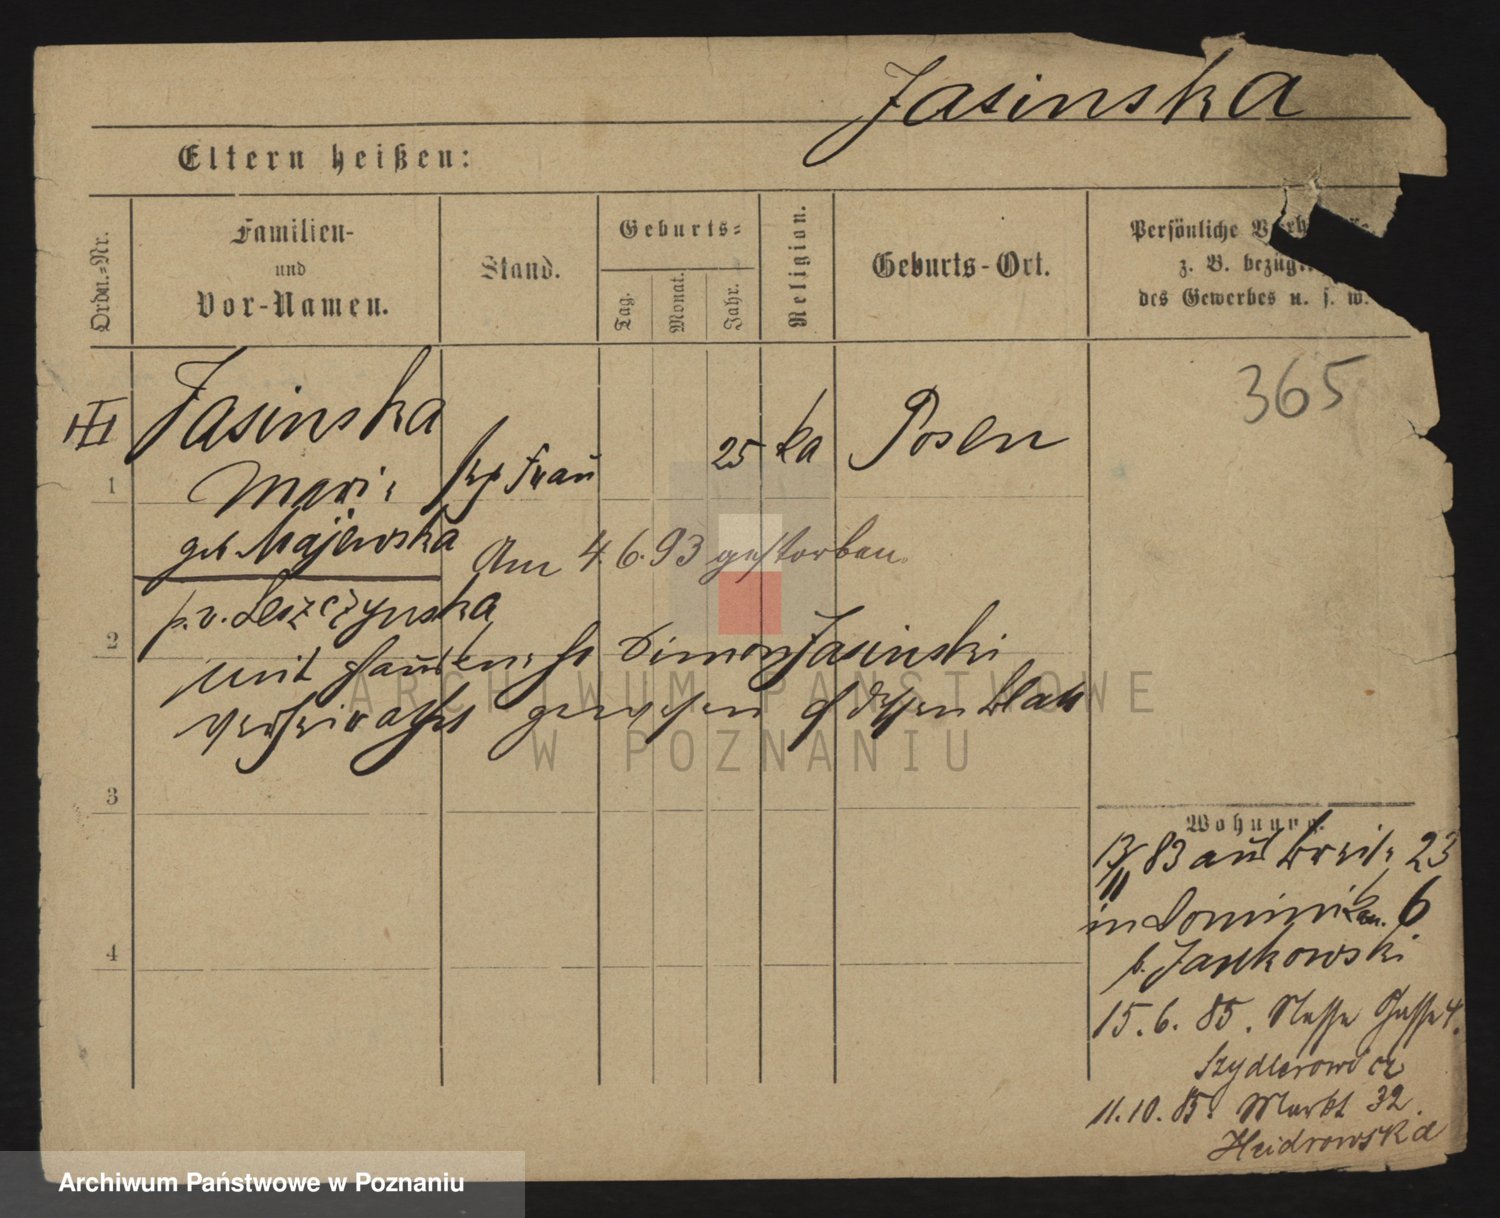 Jasinska
Eltern heißen:
Ordn.=Nr.
Familien-
und
Vor-Namen.
Stand.
Geburts=
Tag.
Monat.
Jahr.
Religion.
Geburts-Ort.
Persönliche
z. B.
des Gewerbes u. s. w.
365
III
Jasinska
1
Marie
Frau
25
ka
Posen
geb Majewska
Am 4.6.93 gestorben.
p. v. Leszczynska
2
mit Simon Jasinski
verheirathet gewesen cf dessen Blatt
3
Wohnung.
13/11 83 aus Breite 23
in Dominikan. 6.
b. Jankowski
4
15. 6. 85. Nasse Gasse 4.
Szydlerowicz
11. 10. 85. Markt 32.
ARCHIWUM PAŃSTWOWE
W POZNANIU
Archiwum Państwowe w Poznaniu